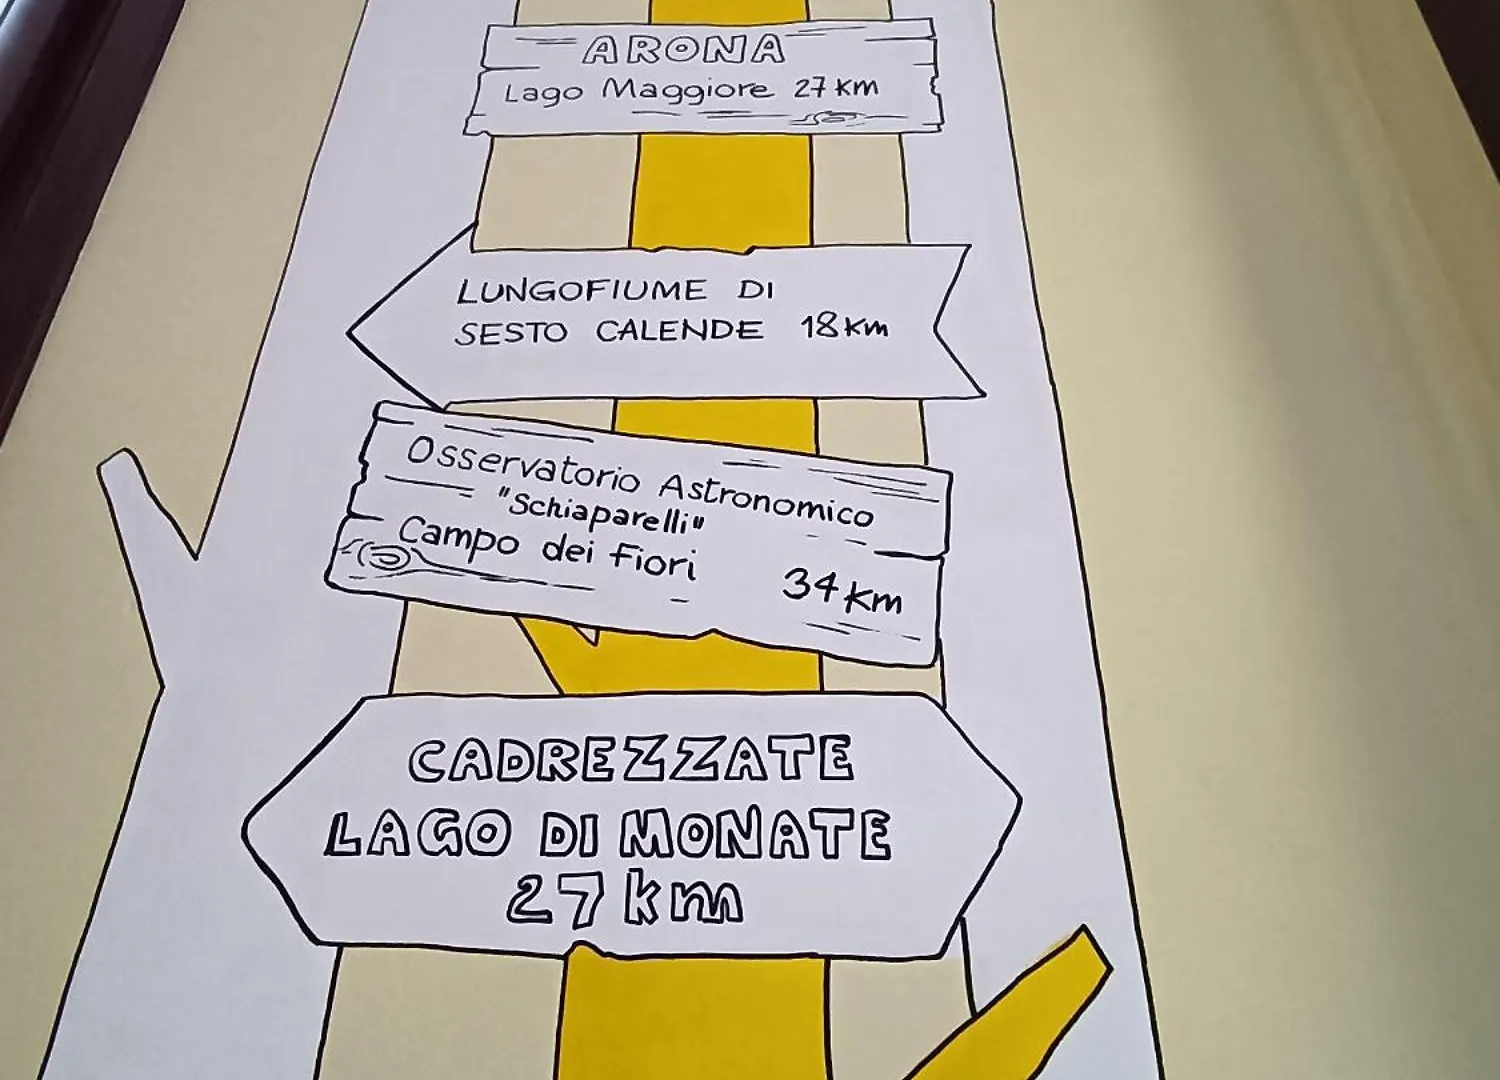 ARONA
Lago Maggiore 27 km
LUNGOFIUME DI
SESTO CALENDE 18 km
Osservatorio Astronomico
"Schiaparelli"
Campo dei fiori 34 km
CADREZZATE
LAGO DI MONATE
27 km